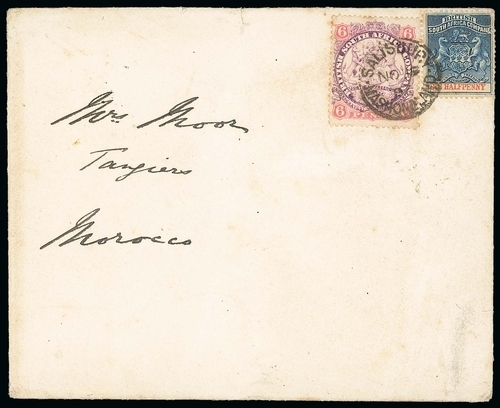 Mrs Moor
Tangiers
Morocco
6 6
BRITISH SOUTH AFRICA COMPANY
6 6
SALISBURY
NO
MASHONALAND
BRITISH
SOUTH AFRICA COMPANY
HALFPENNY